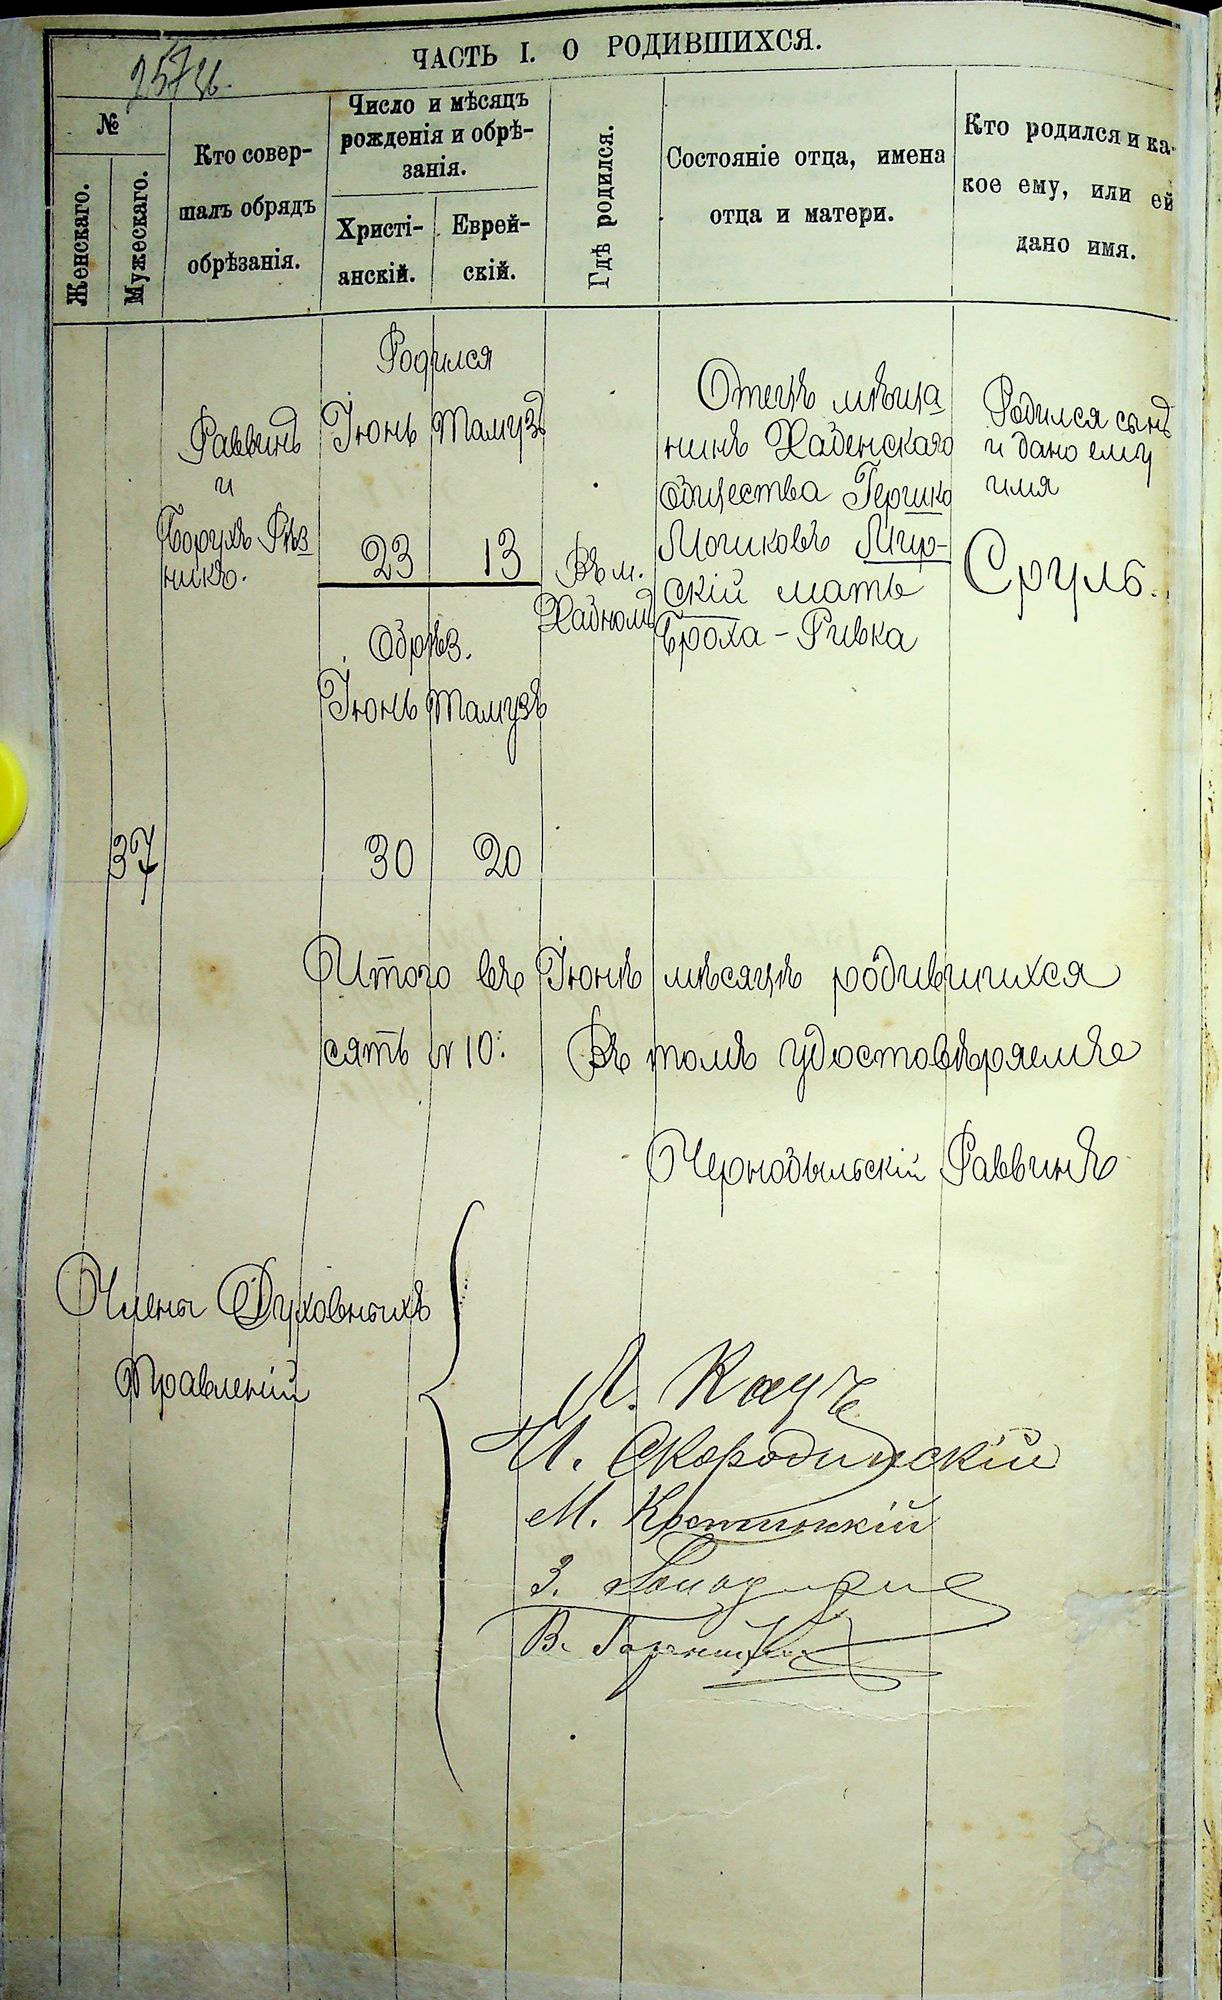 ЧАСТЬ I. О РОДИВШИХСЯ.
№
Женскаго.
Мужескаго.
Кто совер-
шалъ обрядъ
обрѣзанія.
Число и мѣсяцъ
рожденія и обрѣ-
занія.
Христі-
анскій.
Еврей-
скій.
Гдѣ родился.
Состояніе отца, имена
отца и матери.
Кто родился и ка-
кое ему, или ей
дано имя.
37
Раввинъ
и
Борухъ Рѣз
никъ.
Родился
Іюнь Тамузъ
23 13
Обрѣз.
Іюнь Тамузъ
30 20
Въ м.
Хабномъ
Отецъ мѣща
нинъ Хабенскаго
общества Гершко
Мошковъ Мир-
скій мать
Броха-Ривка
Родился сынъ
и дано ему
имя
Сруль.
Итого въ Іюнѣ мѣсяцѣ родившихся
сять № 10. Въ томъ удостовѣряемъ
Чернобыльскій Раввинъ
Члены Духовныхъ
Правленій
Л. Кацъ
И. Скородинскій
М.
З.
В.